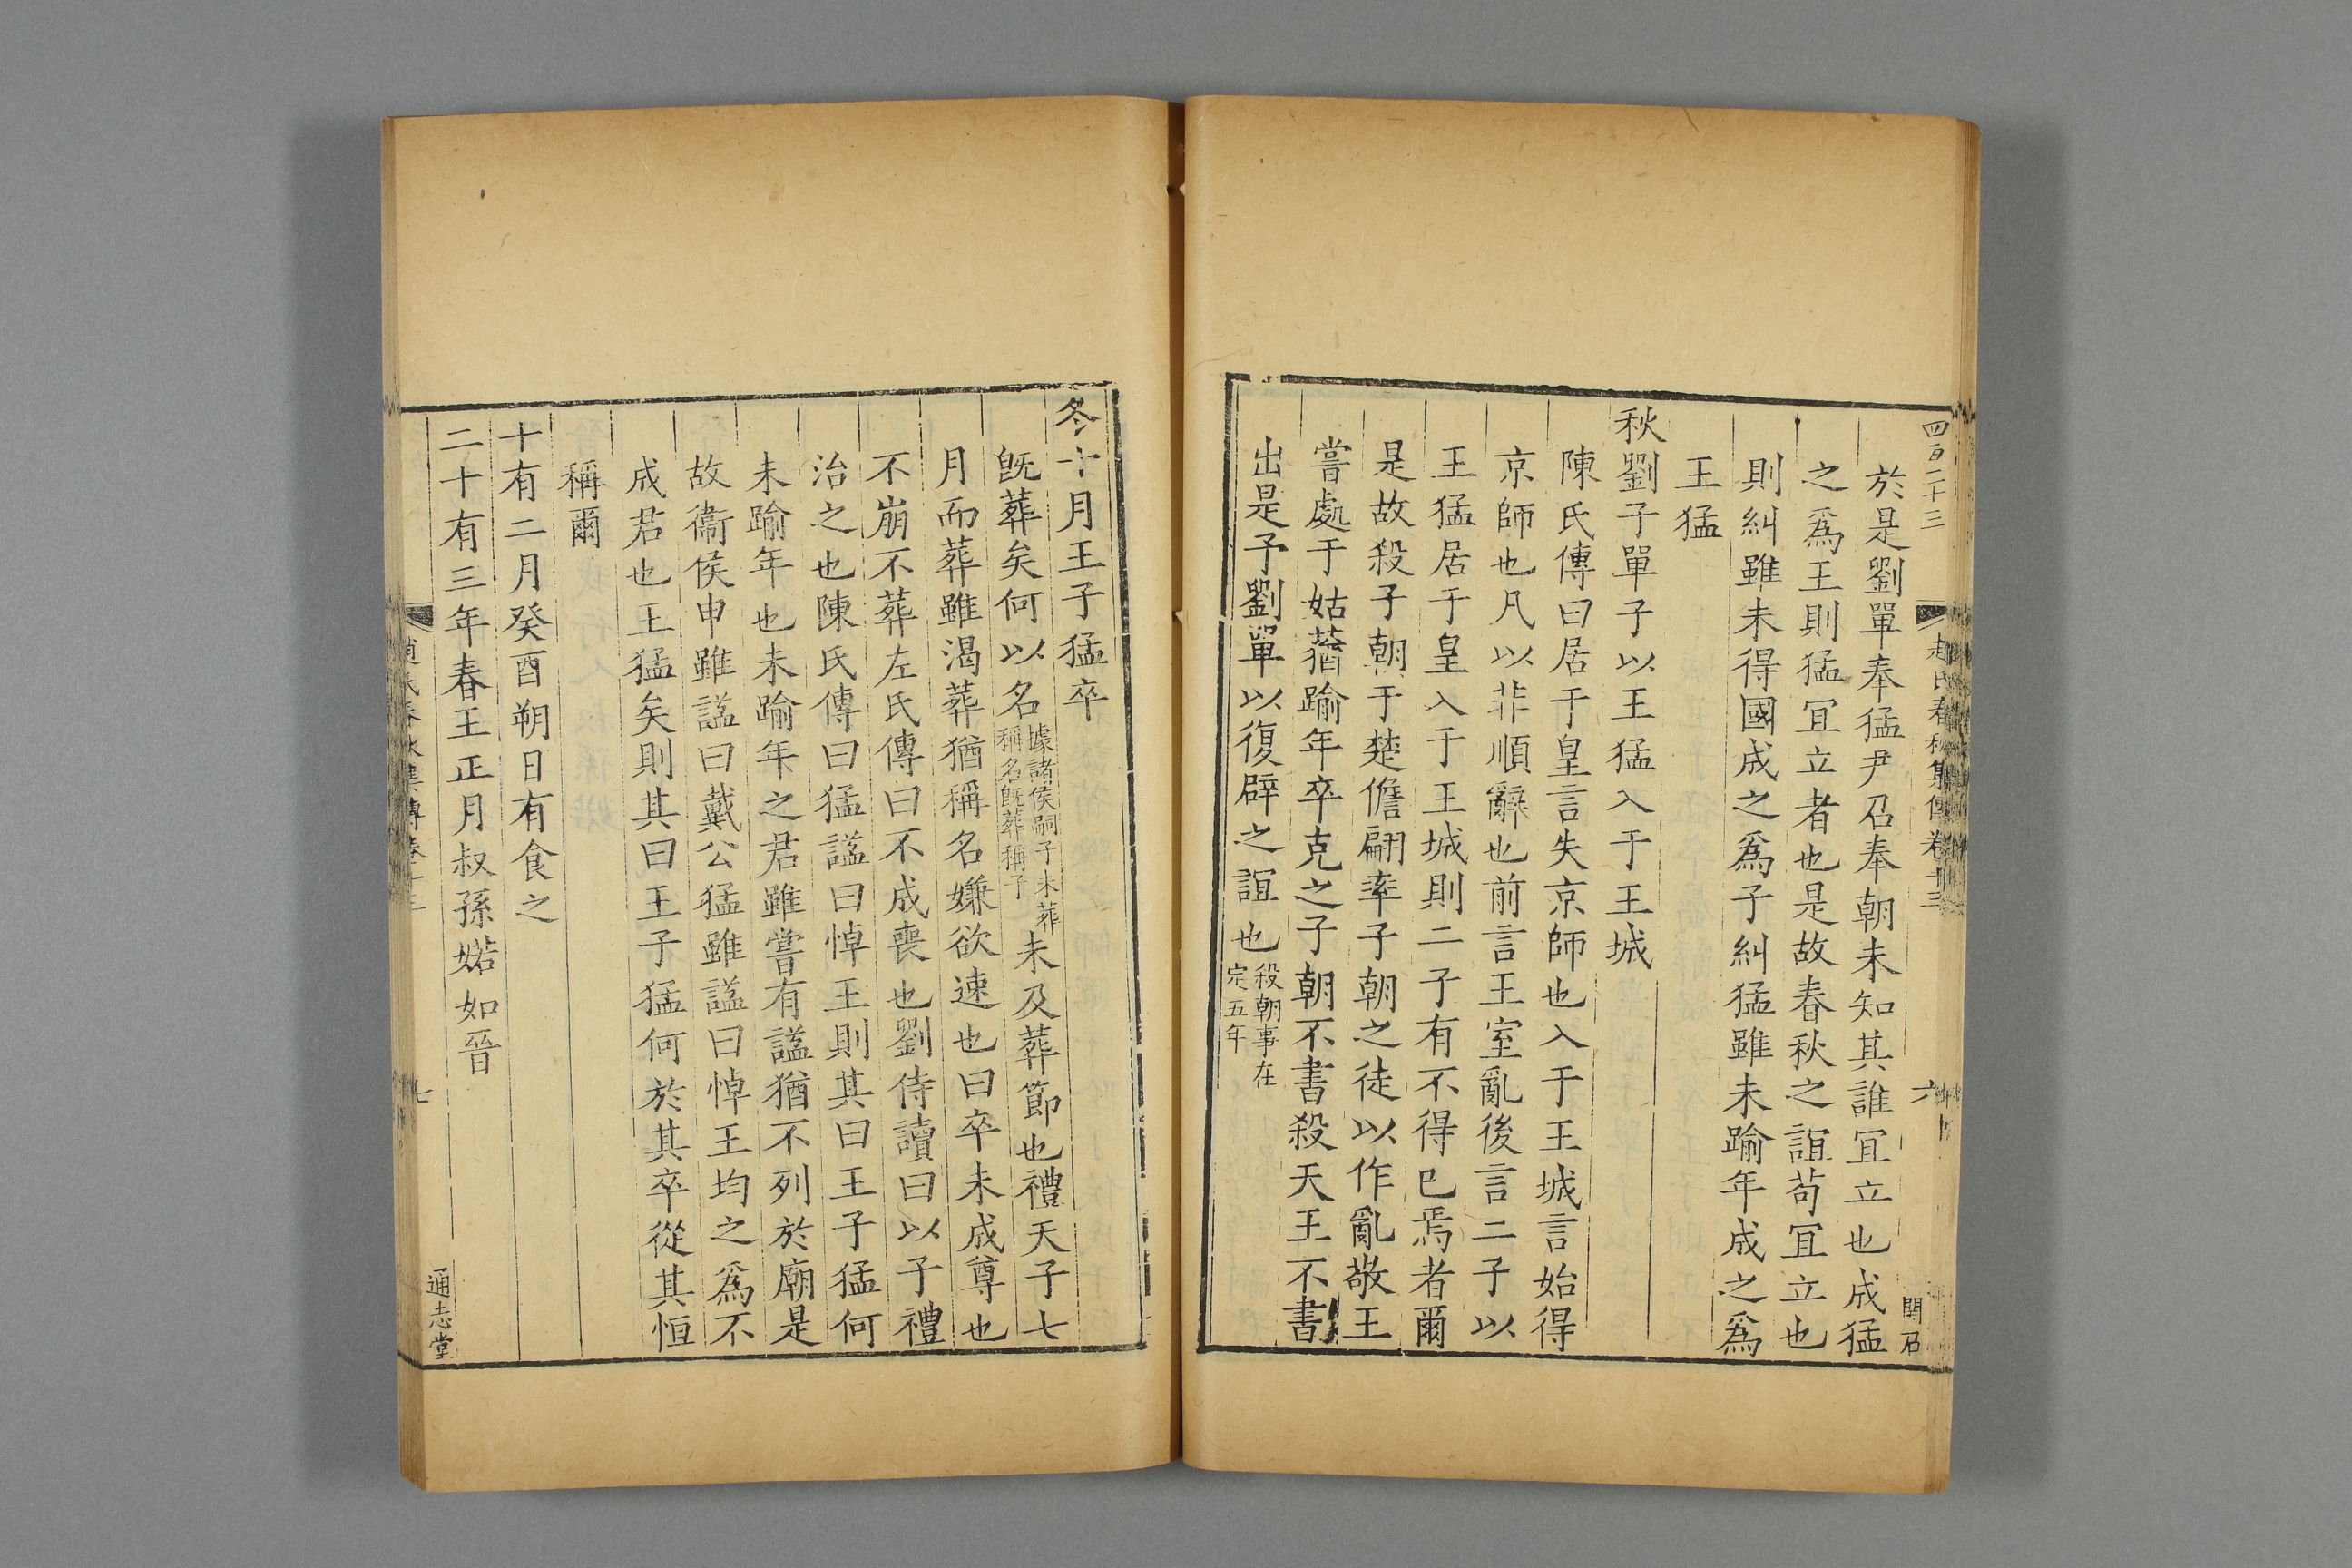 四百二十三
趙氏春秋集傳卷十三
六
於是劉單奉猛尹召奉朝未知其誰宜立也成猛
之爲王則猛宜立者也是故春秋之誼苟宜立也
則糾雖未得國成之爲子糾猛雖未踰年成之爲
王猛
秋劉子單子以王猛入于王城
陳氏傳曰居于皇言失京師也入于王城言始得
京師也凡以非順辭也前言王室亂後言二子以
王猛居于皇入于王城則二子有不得已焉者爾
是故殺子朝于楚儋翩率子朝之徒以作亂敬王
嘗處于姑蕕踰年卒克之子朝不書殺天王不書
出是予劉單以復辟之誼也殺朝事在
定五年
冬十月王子猛卒
旣葬矣何以名據諸侯嗣子未葬
稱名旣葬稱子未及葬節也禮天子七
月而葬雖渴葬猶稱名嫌欲速也曰卒未成尊也
不崩不葬左氏傳曰不成喪也劉侍讀曰以子禮
治之也陳氏傳曰猛諡曰悼王則其曰王子猛何
未踰年也未踰年之君雖嘗有諡猶不列於廟是
故衞侯申雖諡曰戴公猛雖諡曰悼王均之爲不
成君也王猛矣則其曰王子猛何於其卒從其恒
稱爾
十有二月癸酉朔日有食之
二十有三年春王正月叔孫婼如晉
七
通志堂